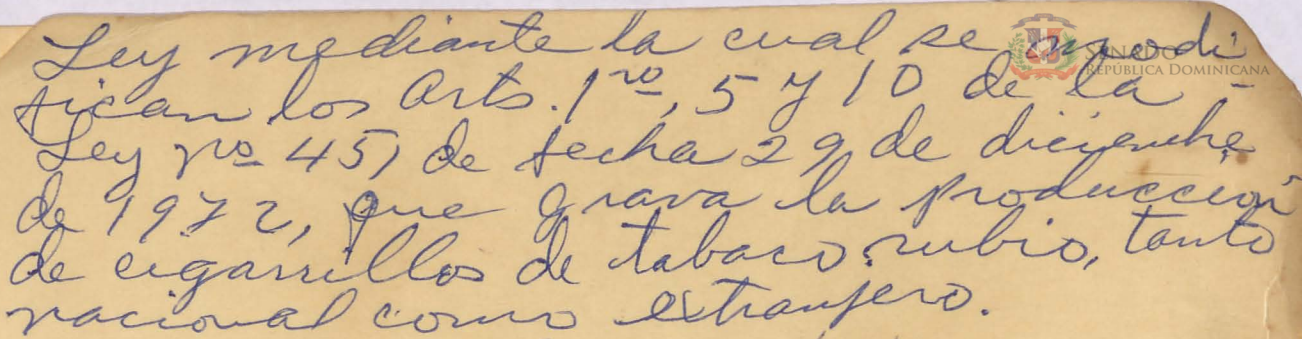 Ley mediante la cual se modi-
fican los Arts. 1ro, 5 y 10 de la
Ley no 451 de fecha 29 de diciembre
de 1972, que grava la producción
de cigarrillos de tabaco rubio, tanto
nacional como extranjero.
SENADO
REPÚBLICA DOMINICANA